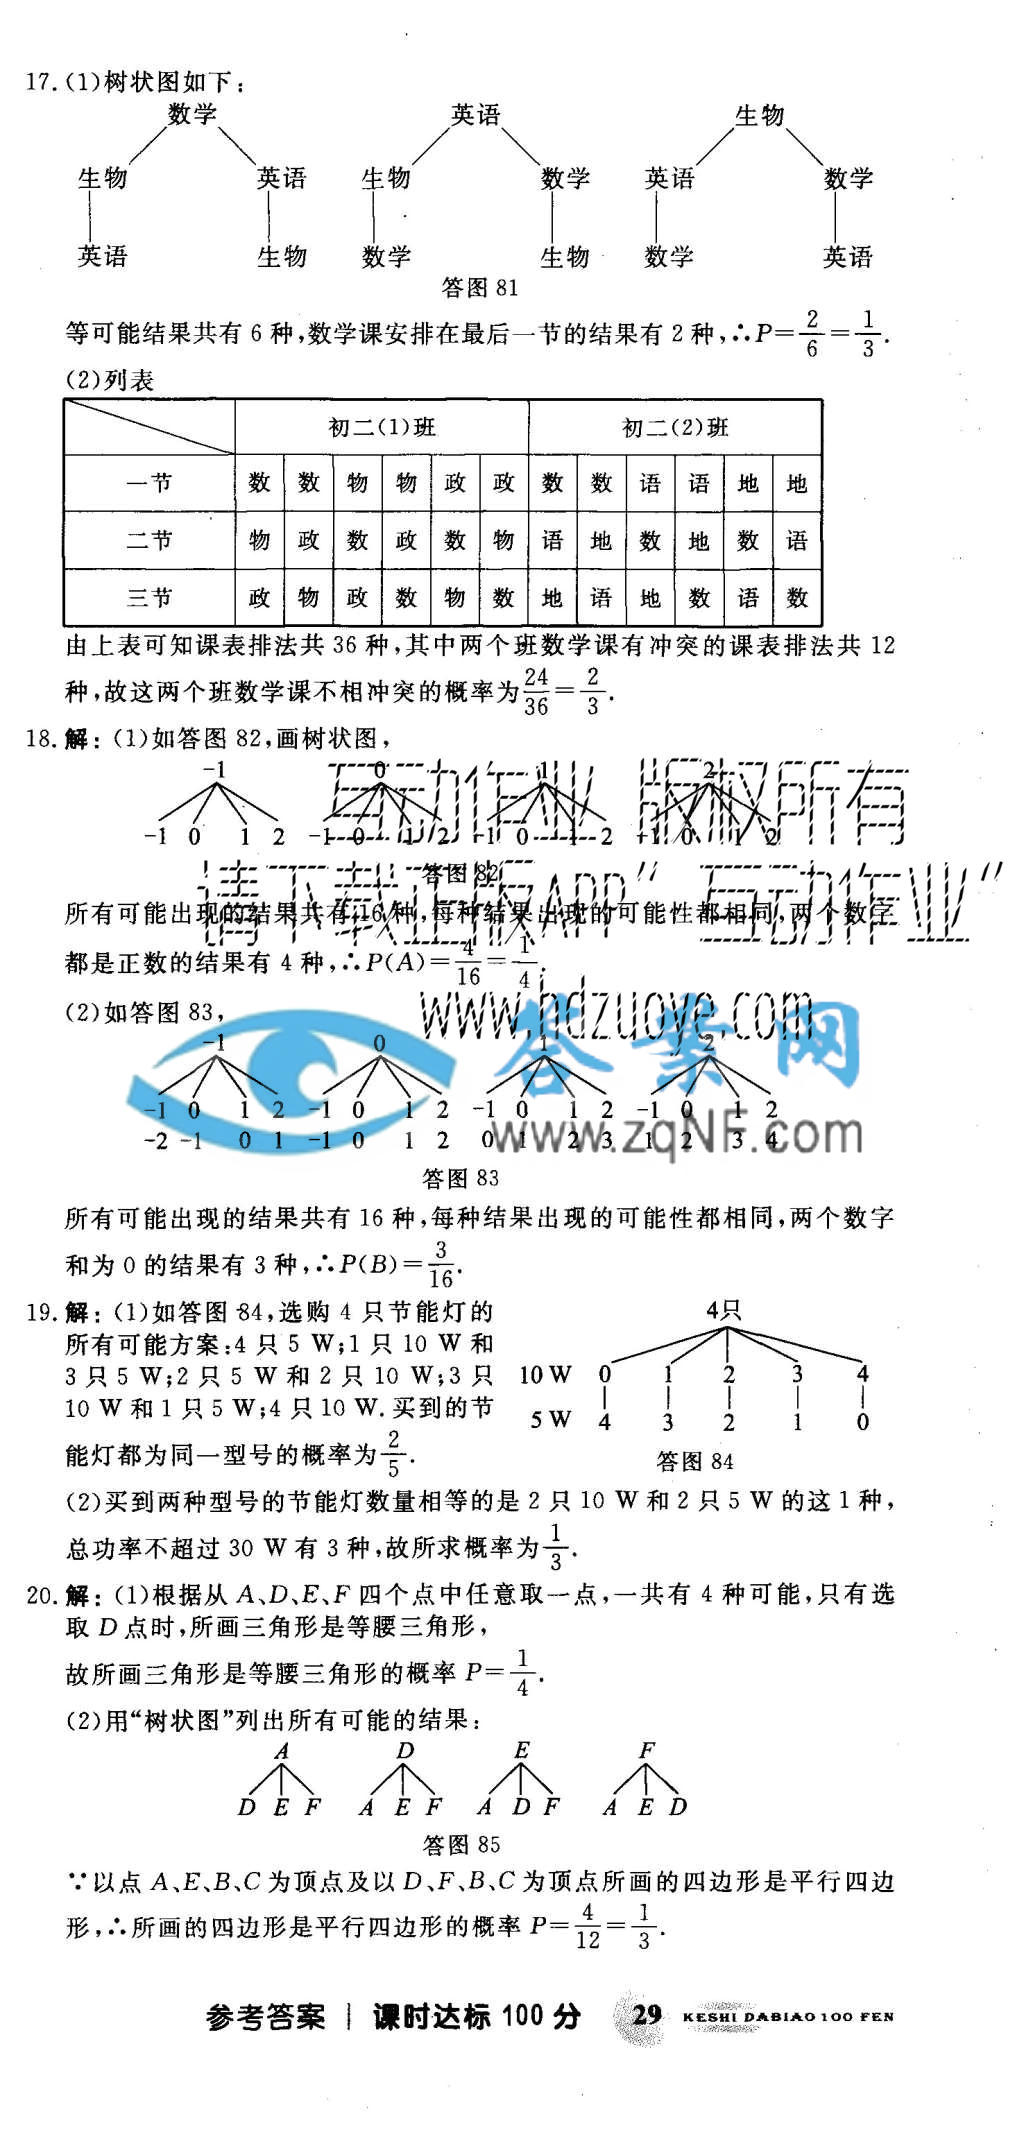 17.(1)树状图如下:
数学 英语 生物
生物 英语 生物 数学 英语 数学
英语 生物 数学 生物 数学 英语
答图 81
等可能结果共有 6 种,数学课安排在最后一节的结果有 2 种,∴P=2/6=1/3.
(2)列表
初二(1)班 初二(2)班
一节 数 数 物 物 政 政 数 数 语 语 地 地
二节 物 政 数 政 数 物 语 地 数 地 数 语
三节 政 物 政 数 物 数 地 语 地 数 语 数
由上表可知课表排法共 36 种,其中两个班数学课有冲突的课表排法共 12
种,故这两个班数学课不相冲突的概率为24/36=2/3.
18.解:(1)如答图 82,画树状图,
-1 0 1 2
-1 0 1 2 -1 0 1 2 -1 0 1 2 -1 0 1 2
互动作业 版权所有
答图 82
请下载正版APP“互动作业”
所有可能出现的结果共有 16 种,每种结果出现的可能性都相同,两个数字
都是正数的结果有 4 种,∴P(A)=4/16=1/4.
www.hdzuoye.com
(2)如答图 83,
答案网
-1 0 1 2
-1 0 1 2 -1 0 1 2 -1 0 1 2 -1 0 1 2
-2 -1 0 1 -1 0 1 2 0 1 2 3 1 2 3 4
www.zqNF.com
答图 83
所有可能出现的结果共有 16 种,每种结果出现的可能性都相同,两个数字
和为 0 的结果有 3 种,∴P(B)=3/16.
19.解:(1)如答图 84,选购 4 只节能灯的
所有可能方案:4 只 5 W;1 只 10 W 和
3 只 5 W;2 只 5 W 和 2 只 10 W;3 只
10 W 和 1 只 5 W;4 只 10 W.买到的节
能灯都为同一型号的概率为2/5.
4只
10 W 0 1 2 3 4
5 W 4 3 2 1 0
答图 84
(2)买到两种型号的节能灯数量相等的是 2 只 10 W 和 2 只 5 W 的这 1 种,
总功率不超过 30 W 有 3 种,故所求概率为1/3.
20.解:(1)根据从 A、D、E、F 四个点中任意取一点,一共有 4 种可能,只有选
取 D 点时,所画三角形是等腰三角形,
故所画三角形是等腰三角形的概率 P=1/4.
(2)用“树状图”列出所有可能的结果:
A D E F
D E F A E F A D F A E D
答图 85
∵以点 A、E、B、C 为顶点及以 D、F、B、C 为顶点所画的四边形是平行四边
形,∴所画的四边形是平行四边形的概率 P=4/12=1/3.
参考答案 | 课时达标 100 分 29 KESHI DABIAO 100 FEN